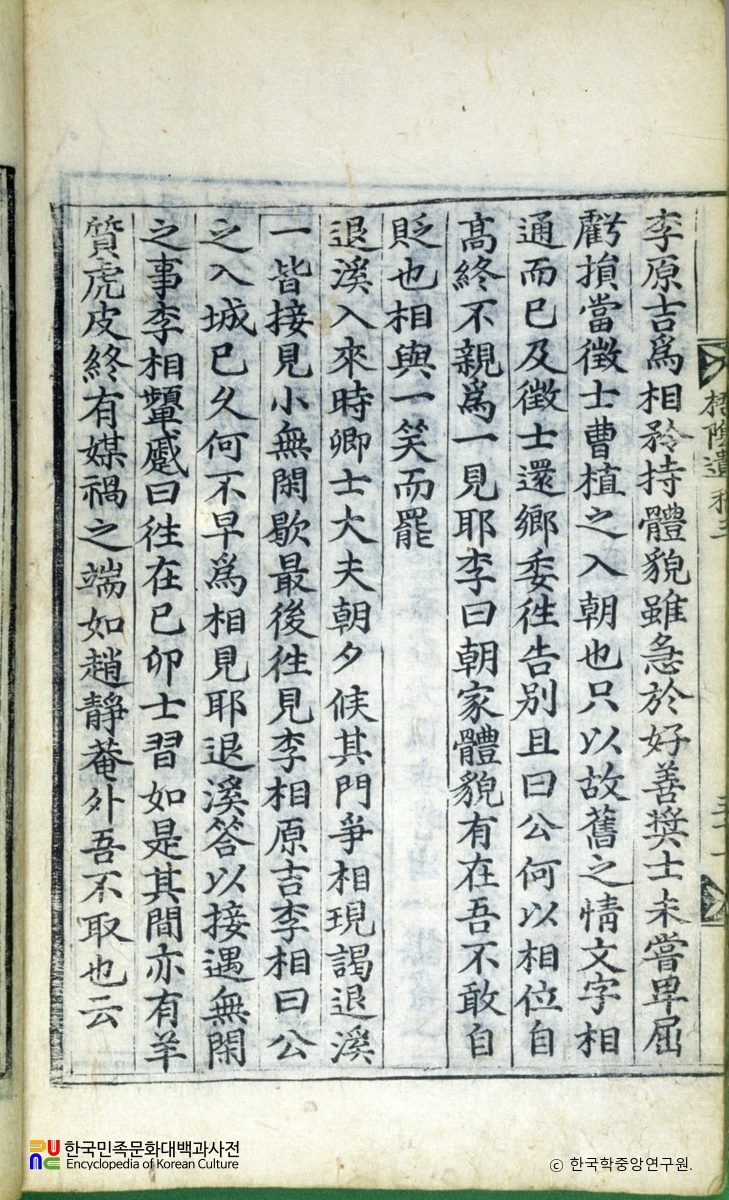 梧陰遺稿三
李原吉爲相矜持體貌雖急於好善奬士未嘗卑屈
虧損當徵士曹植之入朝也只以故舊之情文字相
通而已及徵士還鄉委徃告别且曰公何以相位自
高終不親爲一見耶李曰朝家體貌有在吾不敢自
貶也相與一笑而罷
退溪入來時卿士大夫朝夕候其門爭相現謁退溪
一皆接見小無閑歇最後徃見李相原吉李相曰公
之入城已久何不早爲相見耶退溪答以接遇無閑
之事李相顰蹙曰徃在己卯士習如是其間亦有羊
質虎皮終有媒禍之端如趙靜菴外吾不取也云
한국민족문화대백과사전
Encyclopedia of Korean Culture
© 한국학중앙연구원.